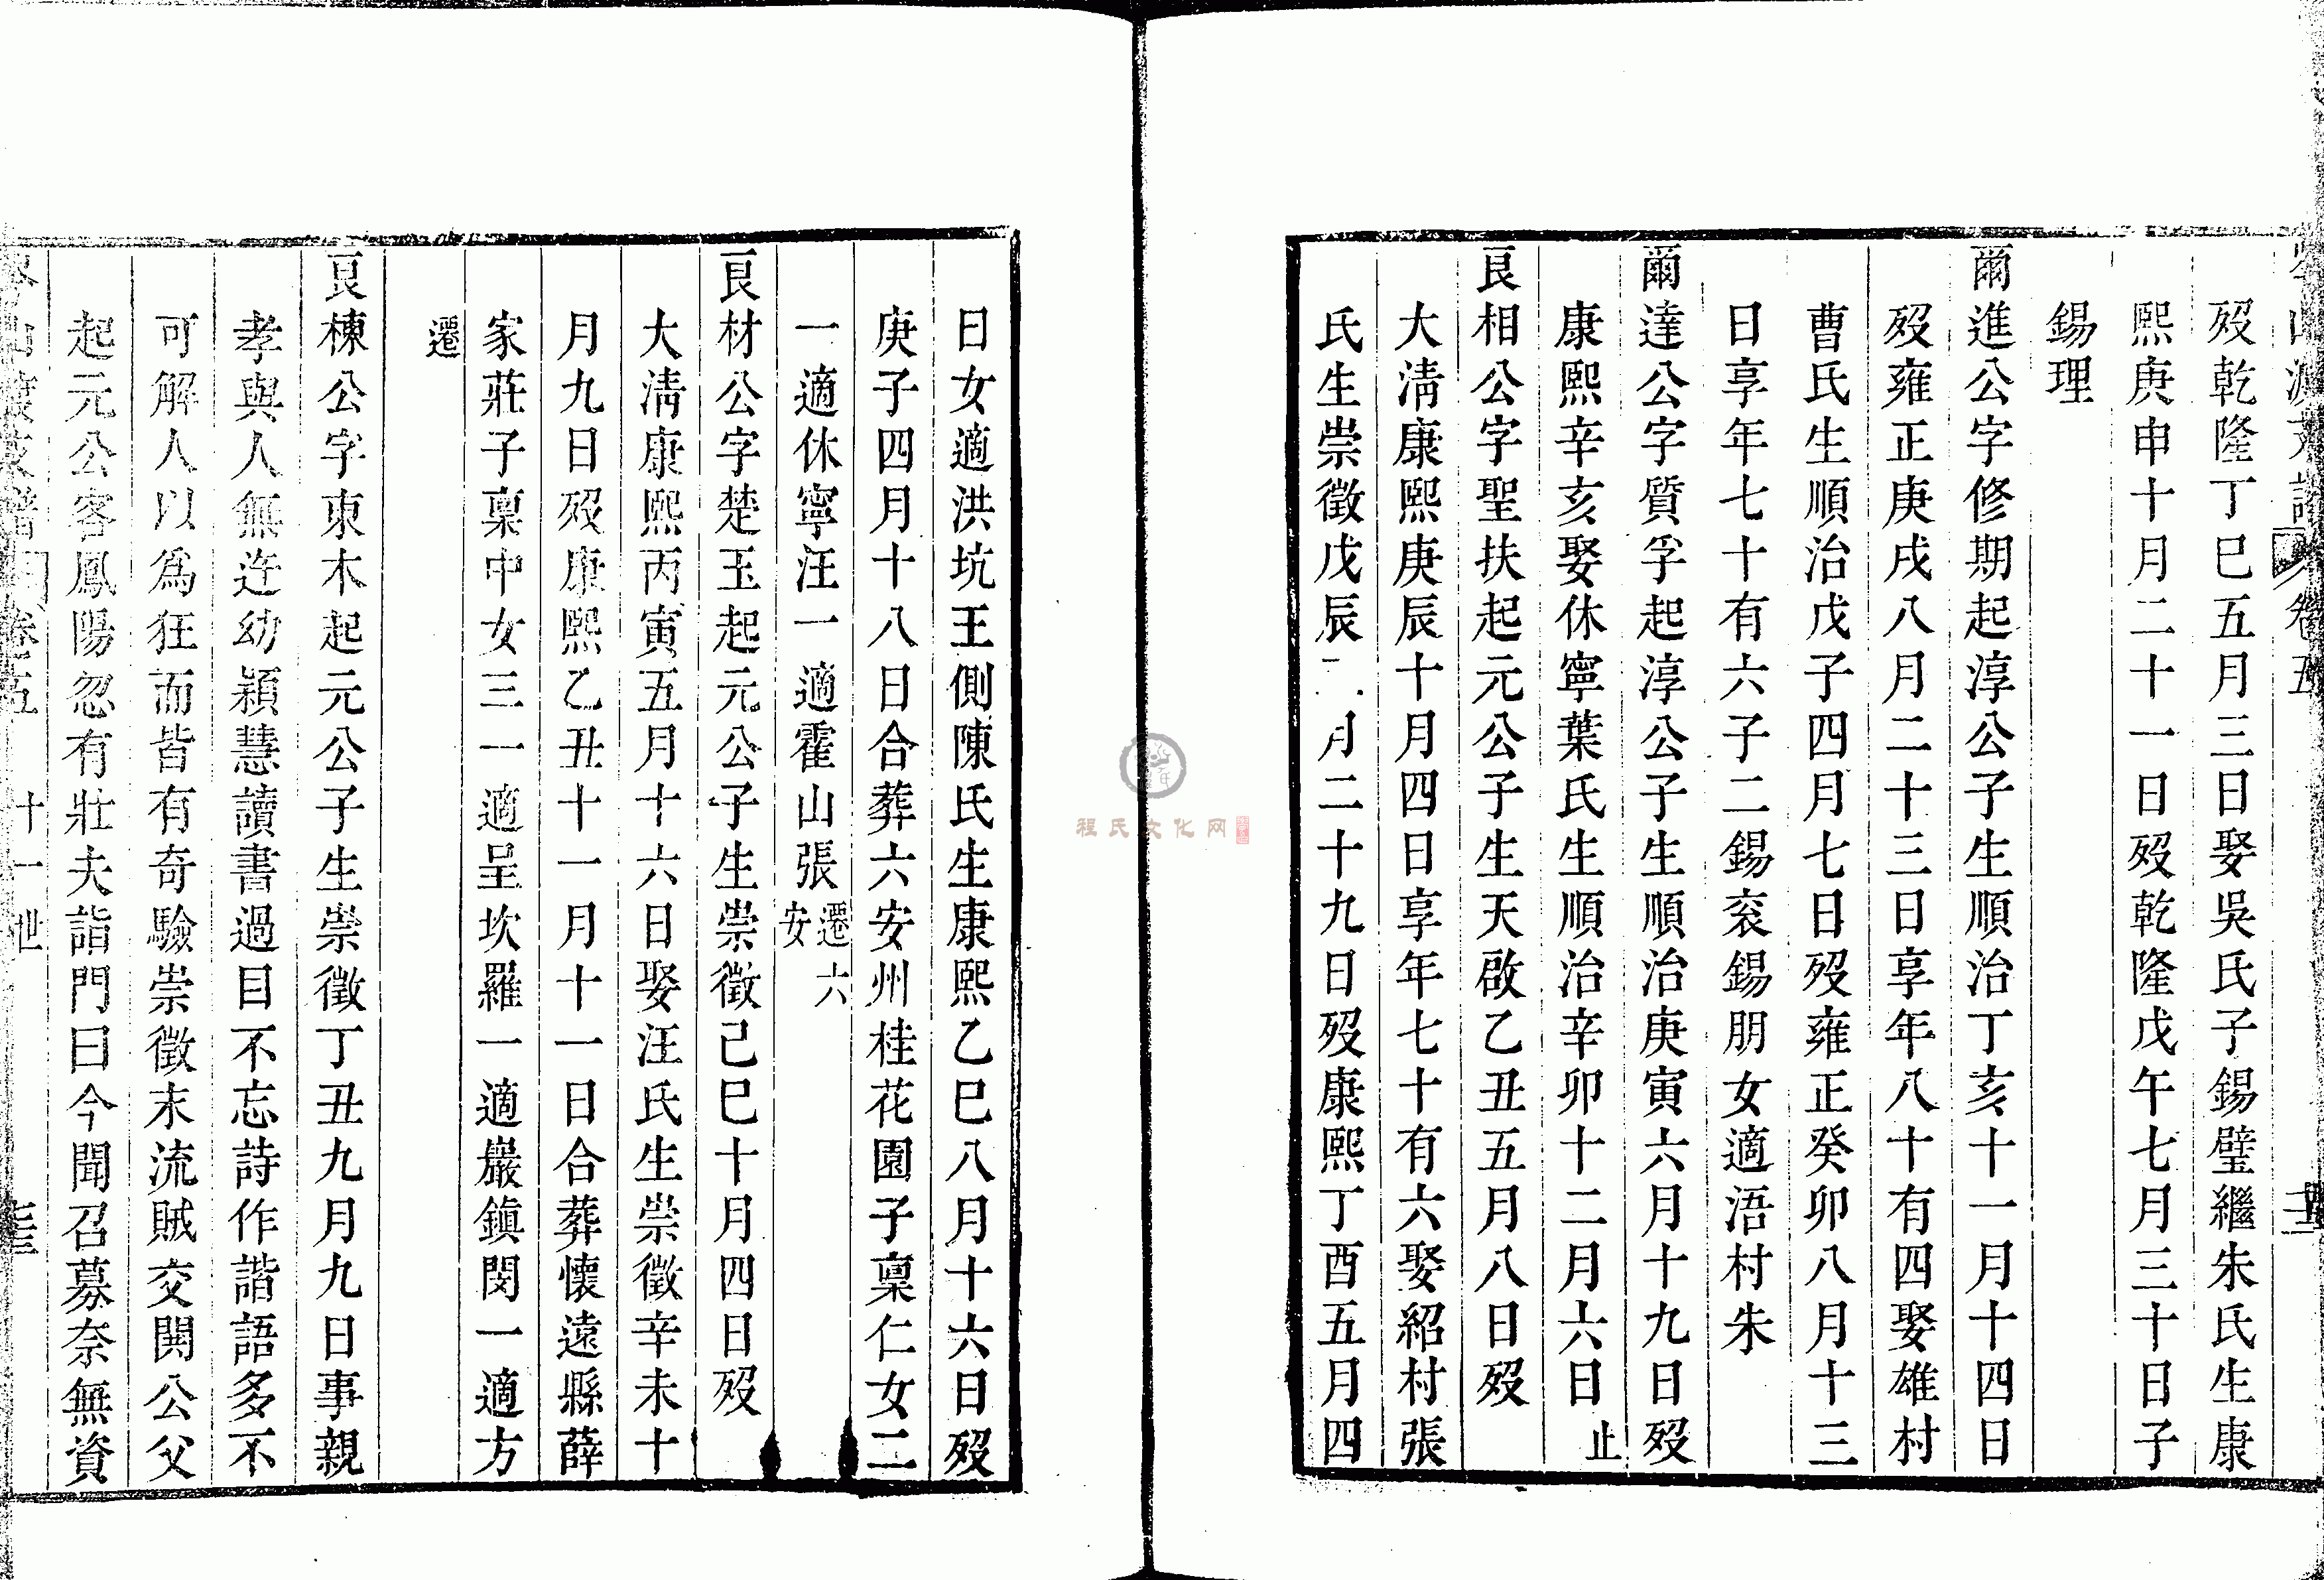 歿乾隆丁巳五月三日娶吳氏子錫璧繼朱氏生康
熙庚申十月二十一日歿乾隆戊午七月三十日子
錫理
爾進公字修期起淳公子生順治丁亥十一月十四日
歿雍正庚戌八月二十三日享年八十有四娶雄村
曹氏生順治戊子四月七日歿雍正癸卯八月十三
日享年七十有六子二錫衮錫朋女適浯村朱
爾達公字質孚起淳公子生順治庚寅六月十九日歿
康熙辛亥娶休寧葉氏生順治辛卯十二月六日止
良相公字聖扶起元公子生天啟乙丑五月八日歿
大清康熙庚辰十月四日享年七十有六娶紹村張
氏生崇徵戊辰二月二十九日歿康熙丁酉五月四
日女適洪坑王側陳氏生康熙乙巳八月十六日歿
庚子四月十八日合葬六安州桂花園子稟仁女二
一適休寧汪一適霍山張遷六安
良材公字楚玉起元公子生崇徵己巳十月四日歿
大清康熙丙寅五月十六日娶汪氏生崇徵辛未十
月九日歿康熙乙丑十一月十一日合葬懷遠縣薛
家莊子稟中女三一適呈坎羅一適巖鎮閔一適方
遷
良棟公字東木起元公子生崇徵丁丑九月九日事親
孝與人無迕幼穎慧讀書過目不忘詩作諧語多不
可解人以為狂而皆有奇驗崇徵末流賊交閧公父
起元公客鳳陽忽有壯夫詣門曰今聞召募奈無資
卷五
十一世
程氏文化网